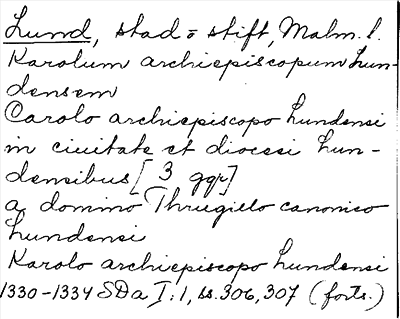 Lund, stad o stift, Malm. l.
Karolum archiepiscopum Lun-
densem
Carolo archiepiscopo Lundensi
in ciuitate et diocesi Lun-
densibus [3 ggr]
a domino Thrugillo canonico
Lundensi
Karolo archiepiscopo Lundensi
1330-1334 SDa I:1, ss. 306, 307 (forts.)